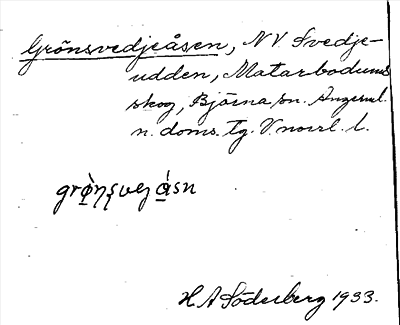 Grönsvedjeåsen, NV. Svedje-
udden, Matarbodums
skog, Björna sn. Ångerml.
n. doms. tg. V.norrl. l.
H A Söderberg 1933.